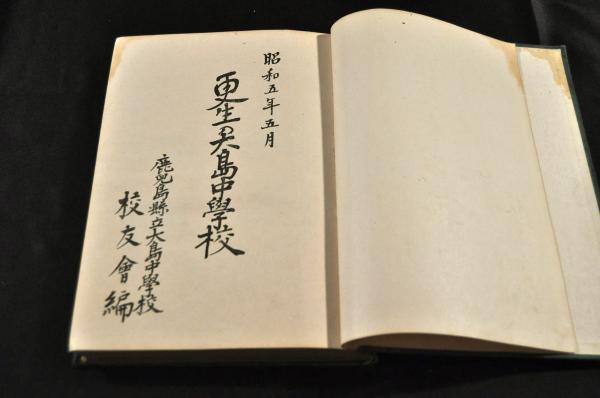 昭和五年五月
更生の大島中學校
鹿兒島縣立大島中學校
校友會編